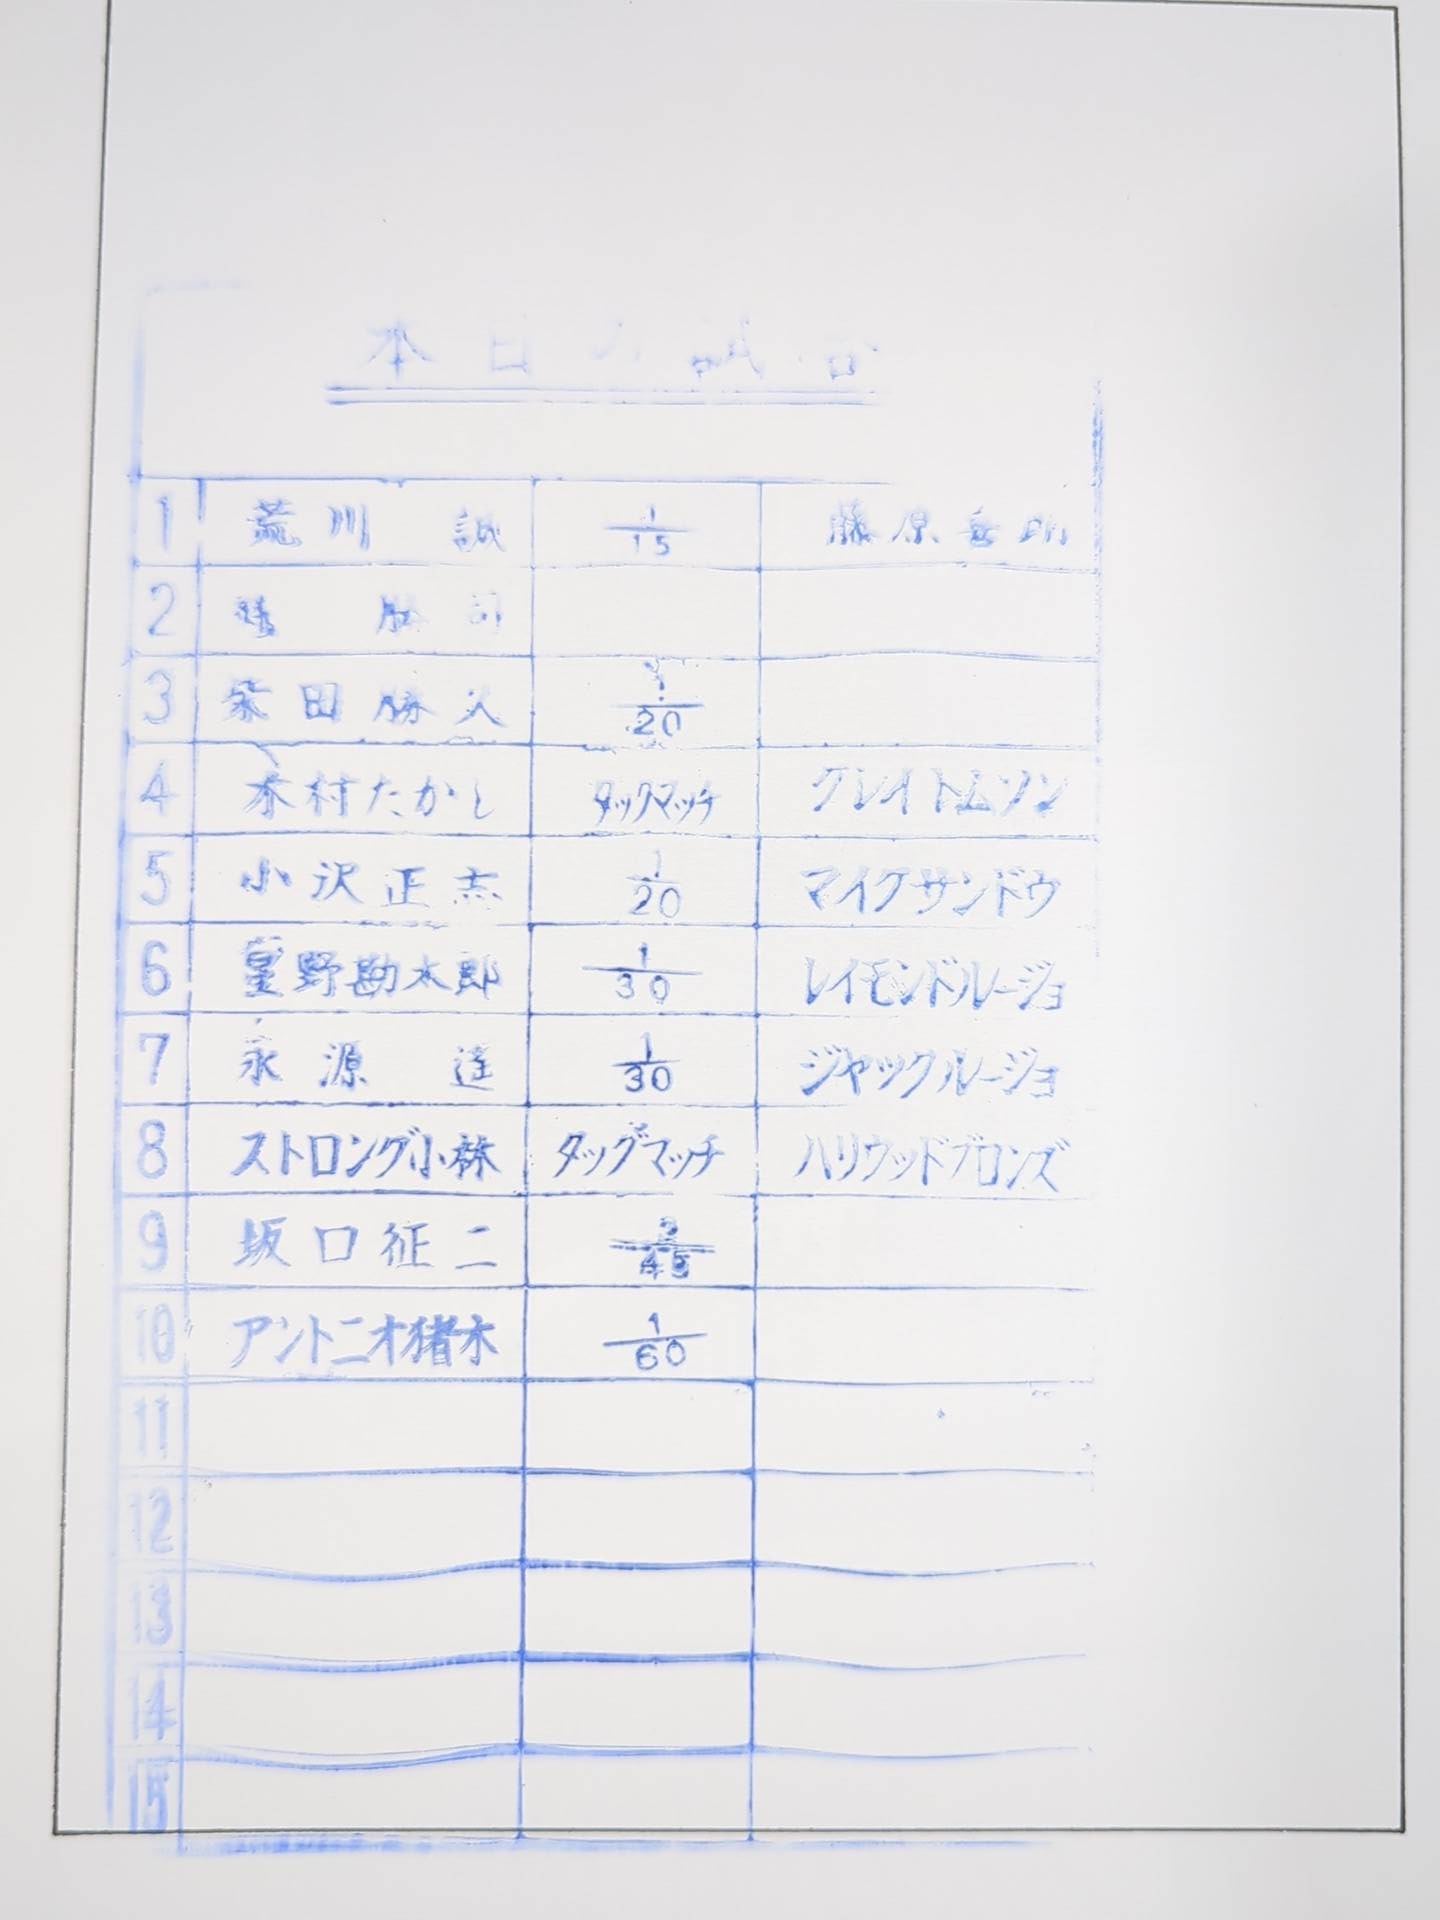 本日の試合
1 荒川 誠 1/15 藤原喜明
2 橘 勝司
3 柴田勝久 1/20
4 木村たかし タッグマッチ クレイトムソン
5 小沢正志 1/20 マイクサンドウ
6 星野勘太郎 1/30 レイモンドルージョ
7 永源 遙 1/30 ジャックルージョ
8 ストロング小林 タッグマッチ ハリウッドブロンズ
9 坂口征二 3/45
10 アントニオ猪木 1/60
11
12
13
14
15